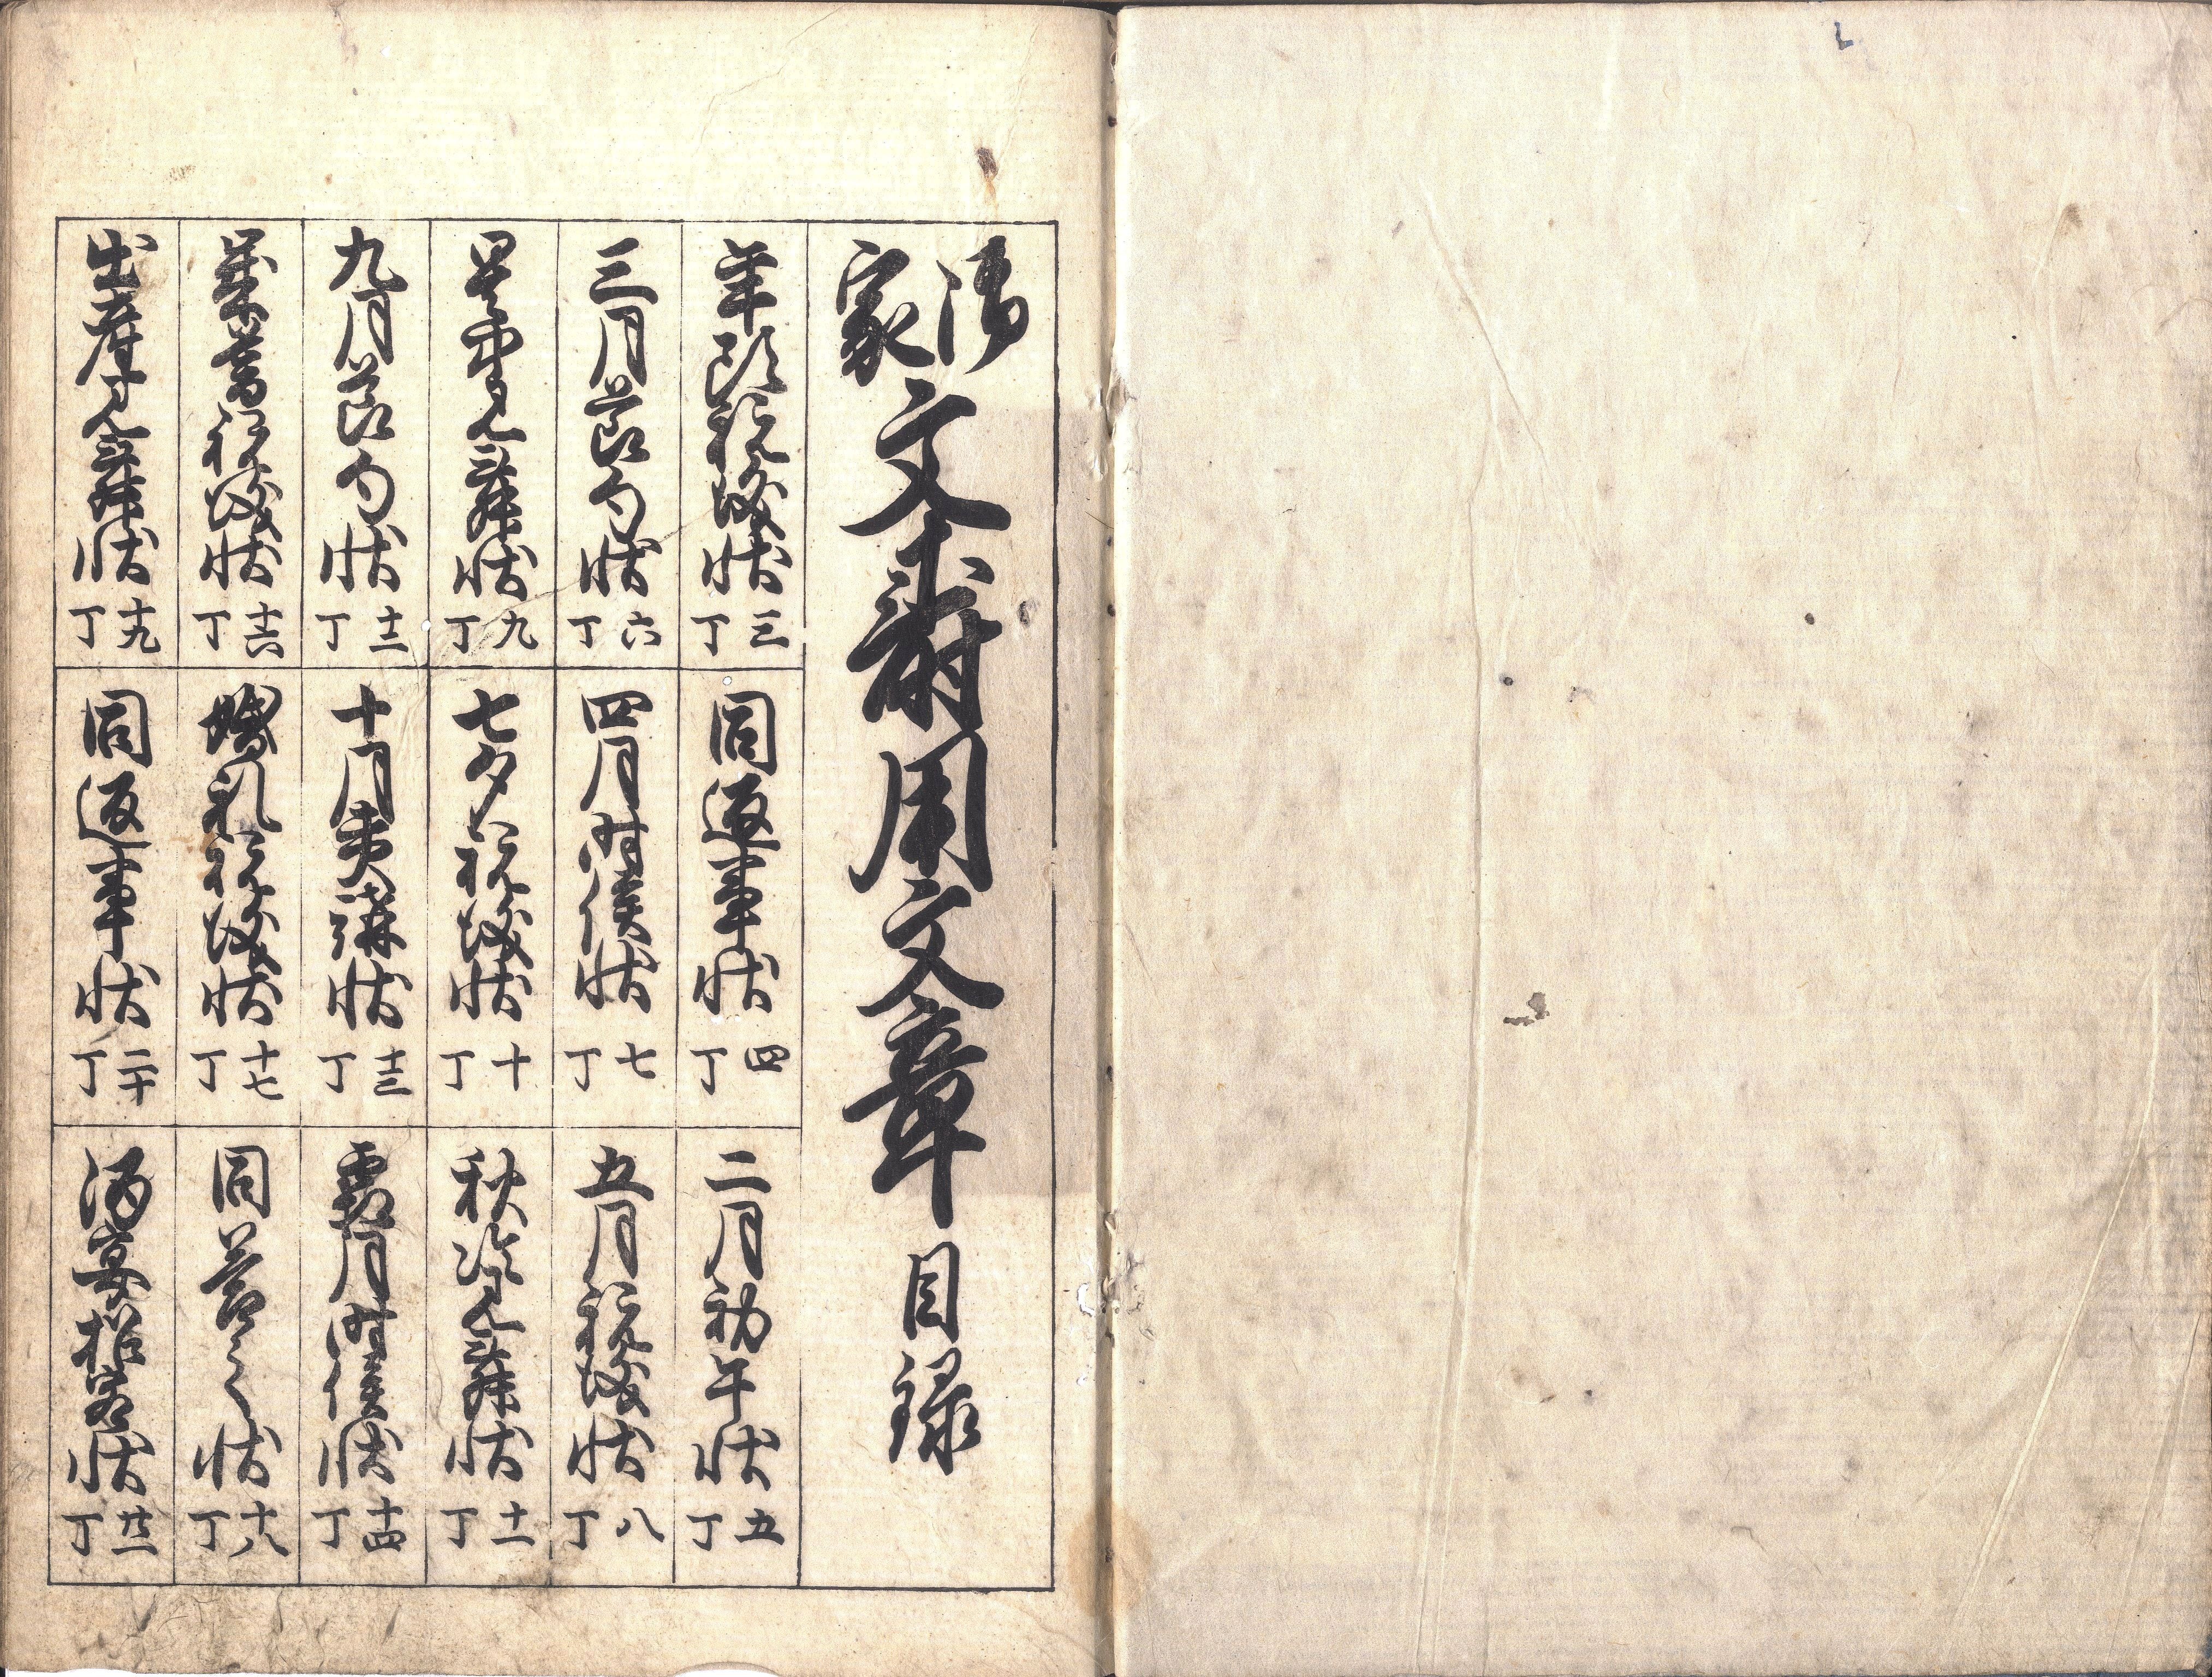 御家文蔚用文章目録
年頭祝儀状 三丁
同返事状 四丁
二月初午状 五丁
三月節句状 六丁
四月 状 七丁
五月祝儀状 八丁
暑中見舞状 九丁
七夕祝儀状 十丁
秋冷見舞状 十一丁
九月節句状 十二丁
十月夷講状 十三丁
霜月 状 十四丁
歳暮祝儀状 十六丁
婚礼祝儀状 十七丁
同答之状 十八丁
出産見舞状 十九丁
同返事状 二十丁
酒宴招客状 廿一丁